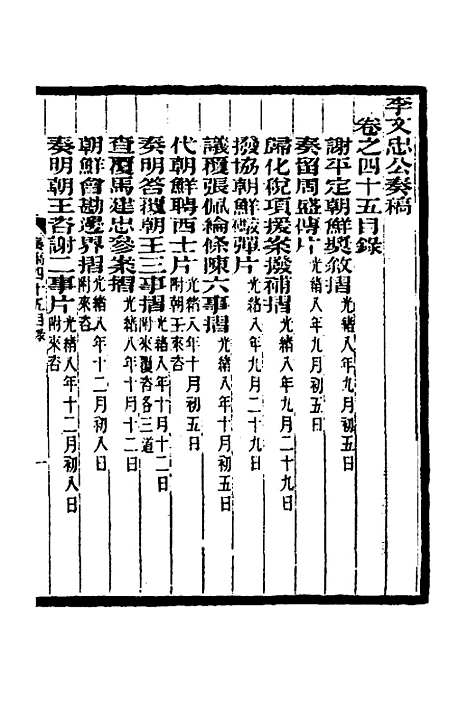 李文忠公奏稿
卷之四十五目錄
謝平定朝鮮獎敘摺光緒八年九月初五日
奏留周盛傳片光緒八年九月初五日
歸化稅項援案撥補摺光緒八年九月二十九日
撥協朝鮮鎗彈片光緒八年九月二十九日
議覆張佩綸條陳六事摺光緒八年十月初五日
代朝鮮聘西士片光緒八年十月初五日附朝王來咨
奏明答覆朝王三事摺光緒八年十月十二日附來覆咨各三道
查覆馬建忠參案摺光緒八年十月十二日
朝鮮會勘邊界摺光緒八年十二月初八日附來咨
奏明朝王咨謝二事片光緒八年十二月初八日附來咨
奏稿四十五目錄
一